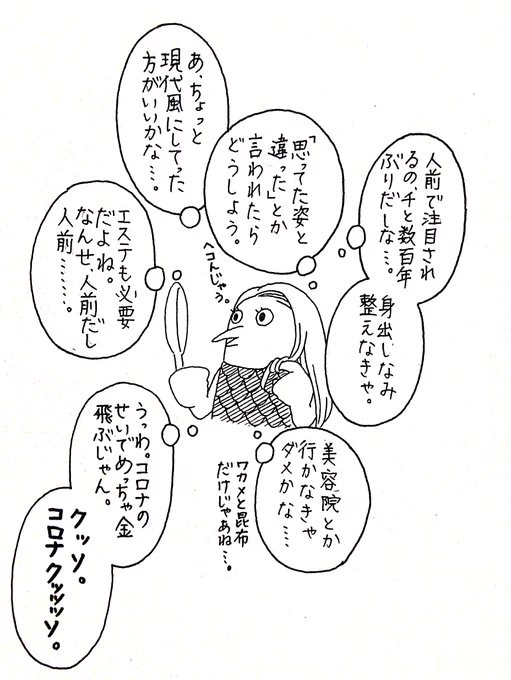 人前で注目され
るの、チと数百年
ぶりだしな…。
身出しなみ
整えなきゃ。
「思ってた姿と
違った」とか
言われたら
どうしよう。
ヘコんじゃう。
あ、ちょっと
現代風にしてった
方がいいかな…。
エステも必要
だよね。
なんせ、人前だし
人前………。
美容院とか
行かなきゃ
ダメかな……
ワカメと昆布
だけじゃあね…。
うっわ。コロナの
せいでめっちゃ金
飛ぶじゃん。
クッソ。
コロナクッッッソ。